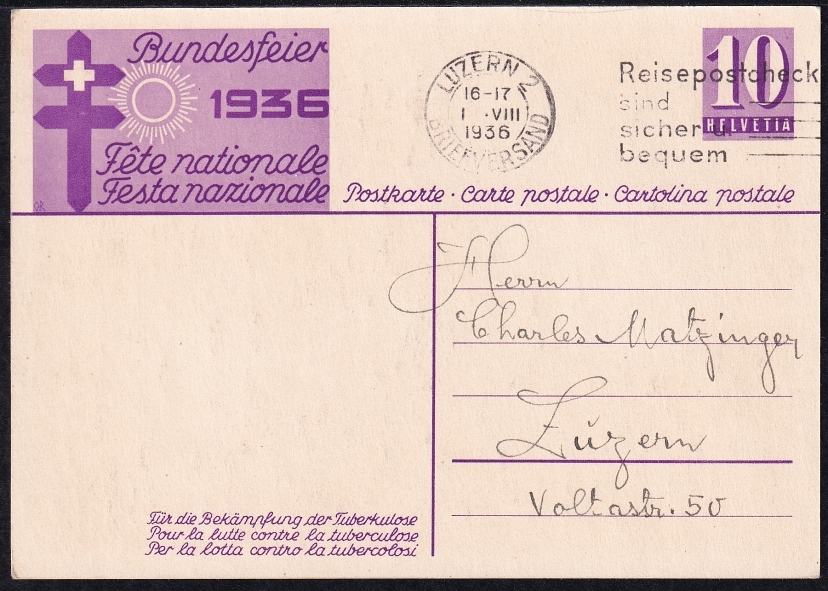 Bundesfeier
1936
Fête nationale
Festa nazionale
LUZERN 2
16-17
1. VIII
1936
BRIEFVERSAND
Reisepostcheck
sind
sicher u.
bequem
10
HELVETIA
Postkarte · Carte postale · Cartolina postale
Herrn
Charles Matzinger
Luzern
Voltastr. 50
Für die Bekämpfung der Tuberkulose
Pour la lutte contre la tuberculose
Per la lotta contro la tubercolosi